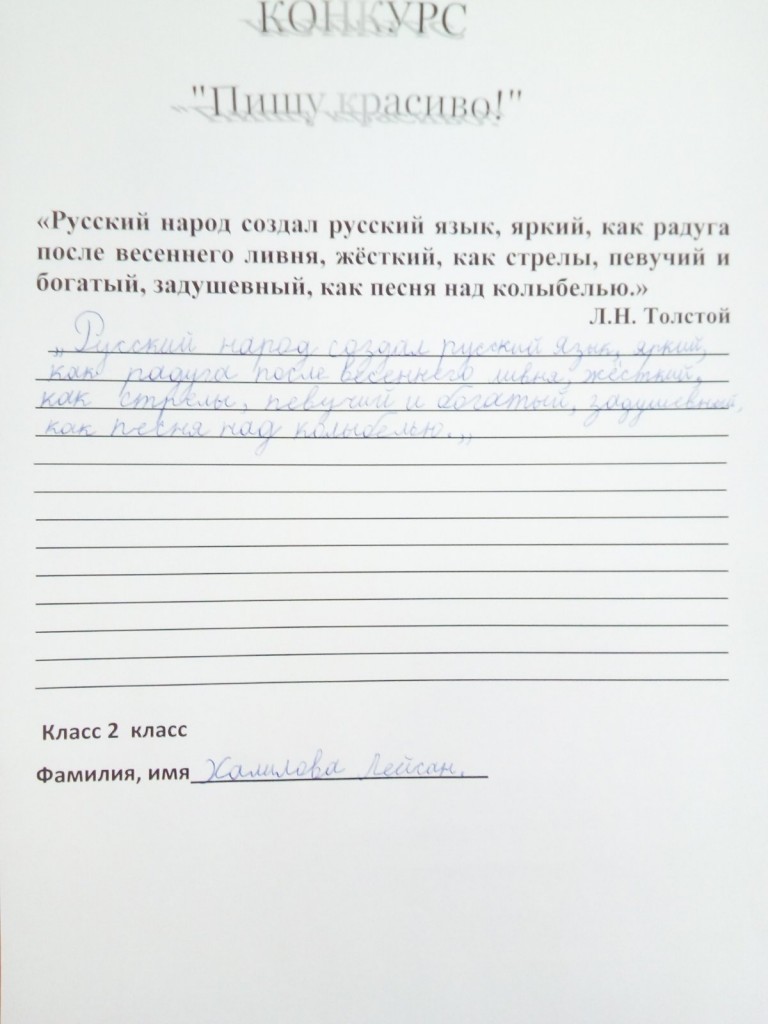 КОНКУРС
"Пишу красиво!"
«Русский народ создал русский язык, яркий, как радуга
после весеннего ливня, жёсткий, как стрелы, певучий и
богатый, задушевный, как песня над колыбелью.»
Л.Н. Толстой
„Русский народ создал русский язык, яркий,
как радуга после весеннего ливня, жёсткий,
как стрелы, певучий и богатый, задушевный,
как песня над колыбелью.„
Класс 2 класс
Фамилия, имя Халилова Лейсан.